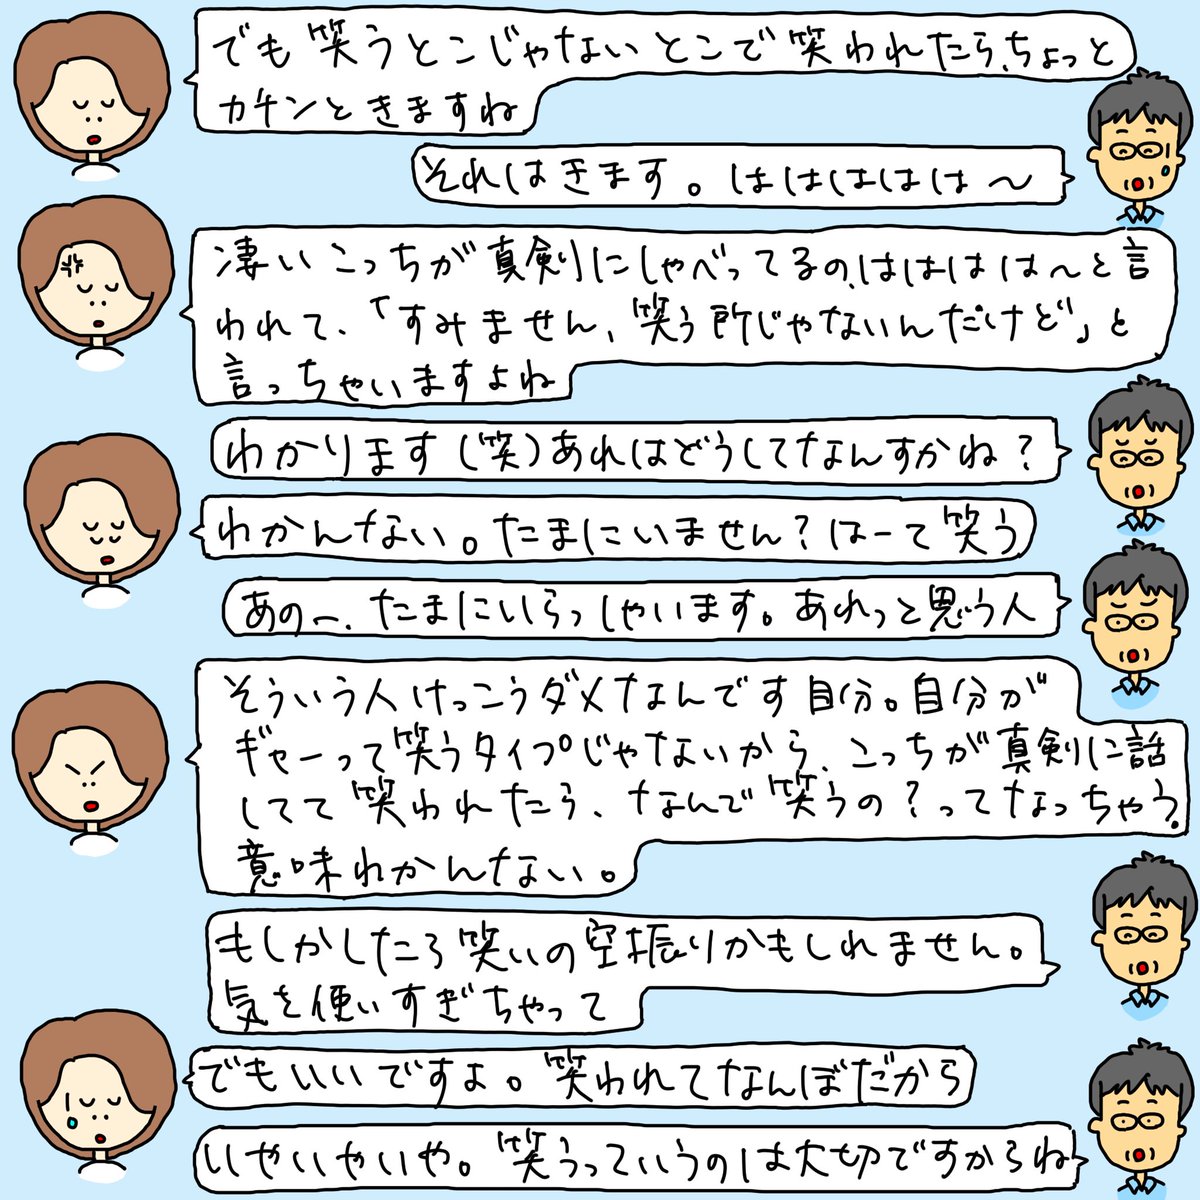 でも笑うとこじゃないとこで笑われたら、ちょっと
カチンときますね
それはきます。はははははは〜
凄いこっちが真剣にしゃべってるの、はははは〜と言
われて、「すみません、笑う所じゃないんだけど」と
言っちゃいますよね
わかります(笑)あれはどうしてなんすかね?
わかんない。たまにいません?はーて笑う
あのー、たまにいらっしゃいます。あれっと思う人
そういう人けっこうダメなんです自分。自分が
ギャーって笑うタイプじゃないから、こっちが真剣に話
してて笑われたら、なんで笑うの?ってなっちゃう。
意味わかんない。
もしかしたら笑いの空振りかもしれません。
気を使いすぎちゃって
でもいいですよ。笑われてなんぼだから
いやいやいや。笑うっていうのは大切ですからね